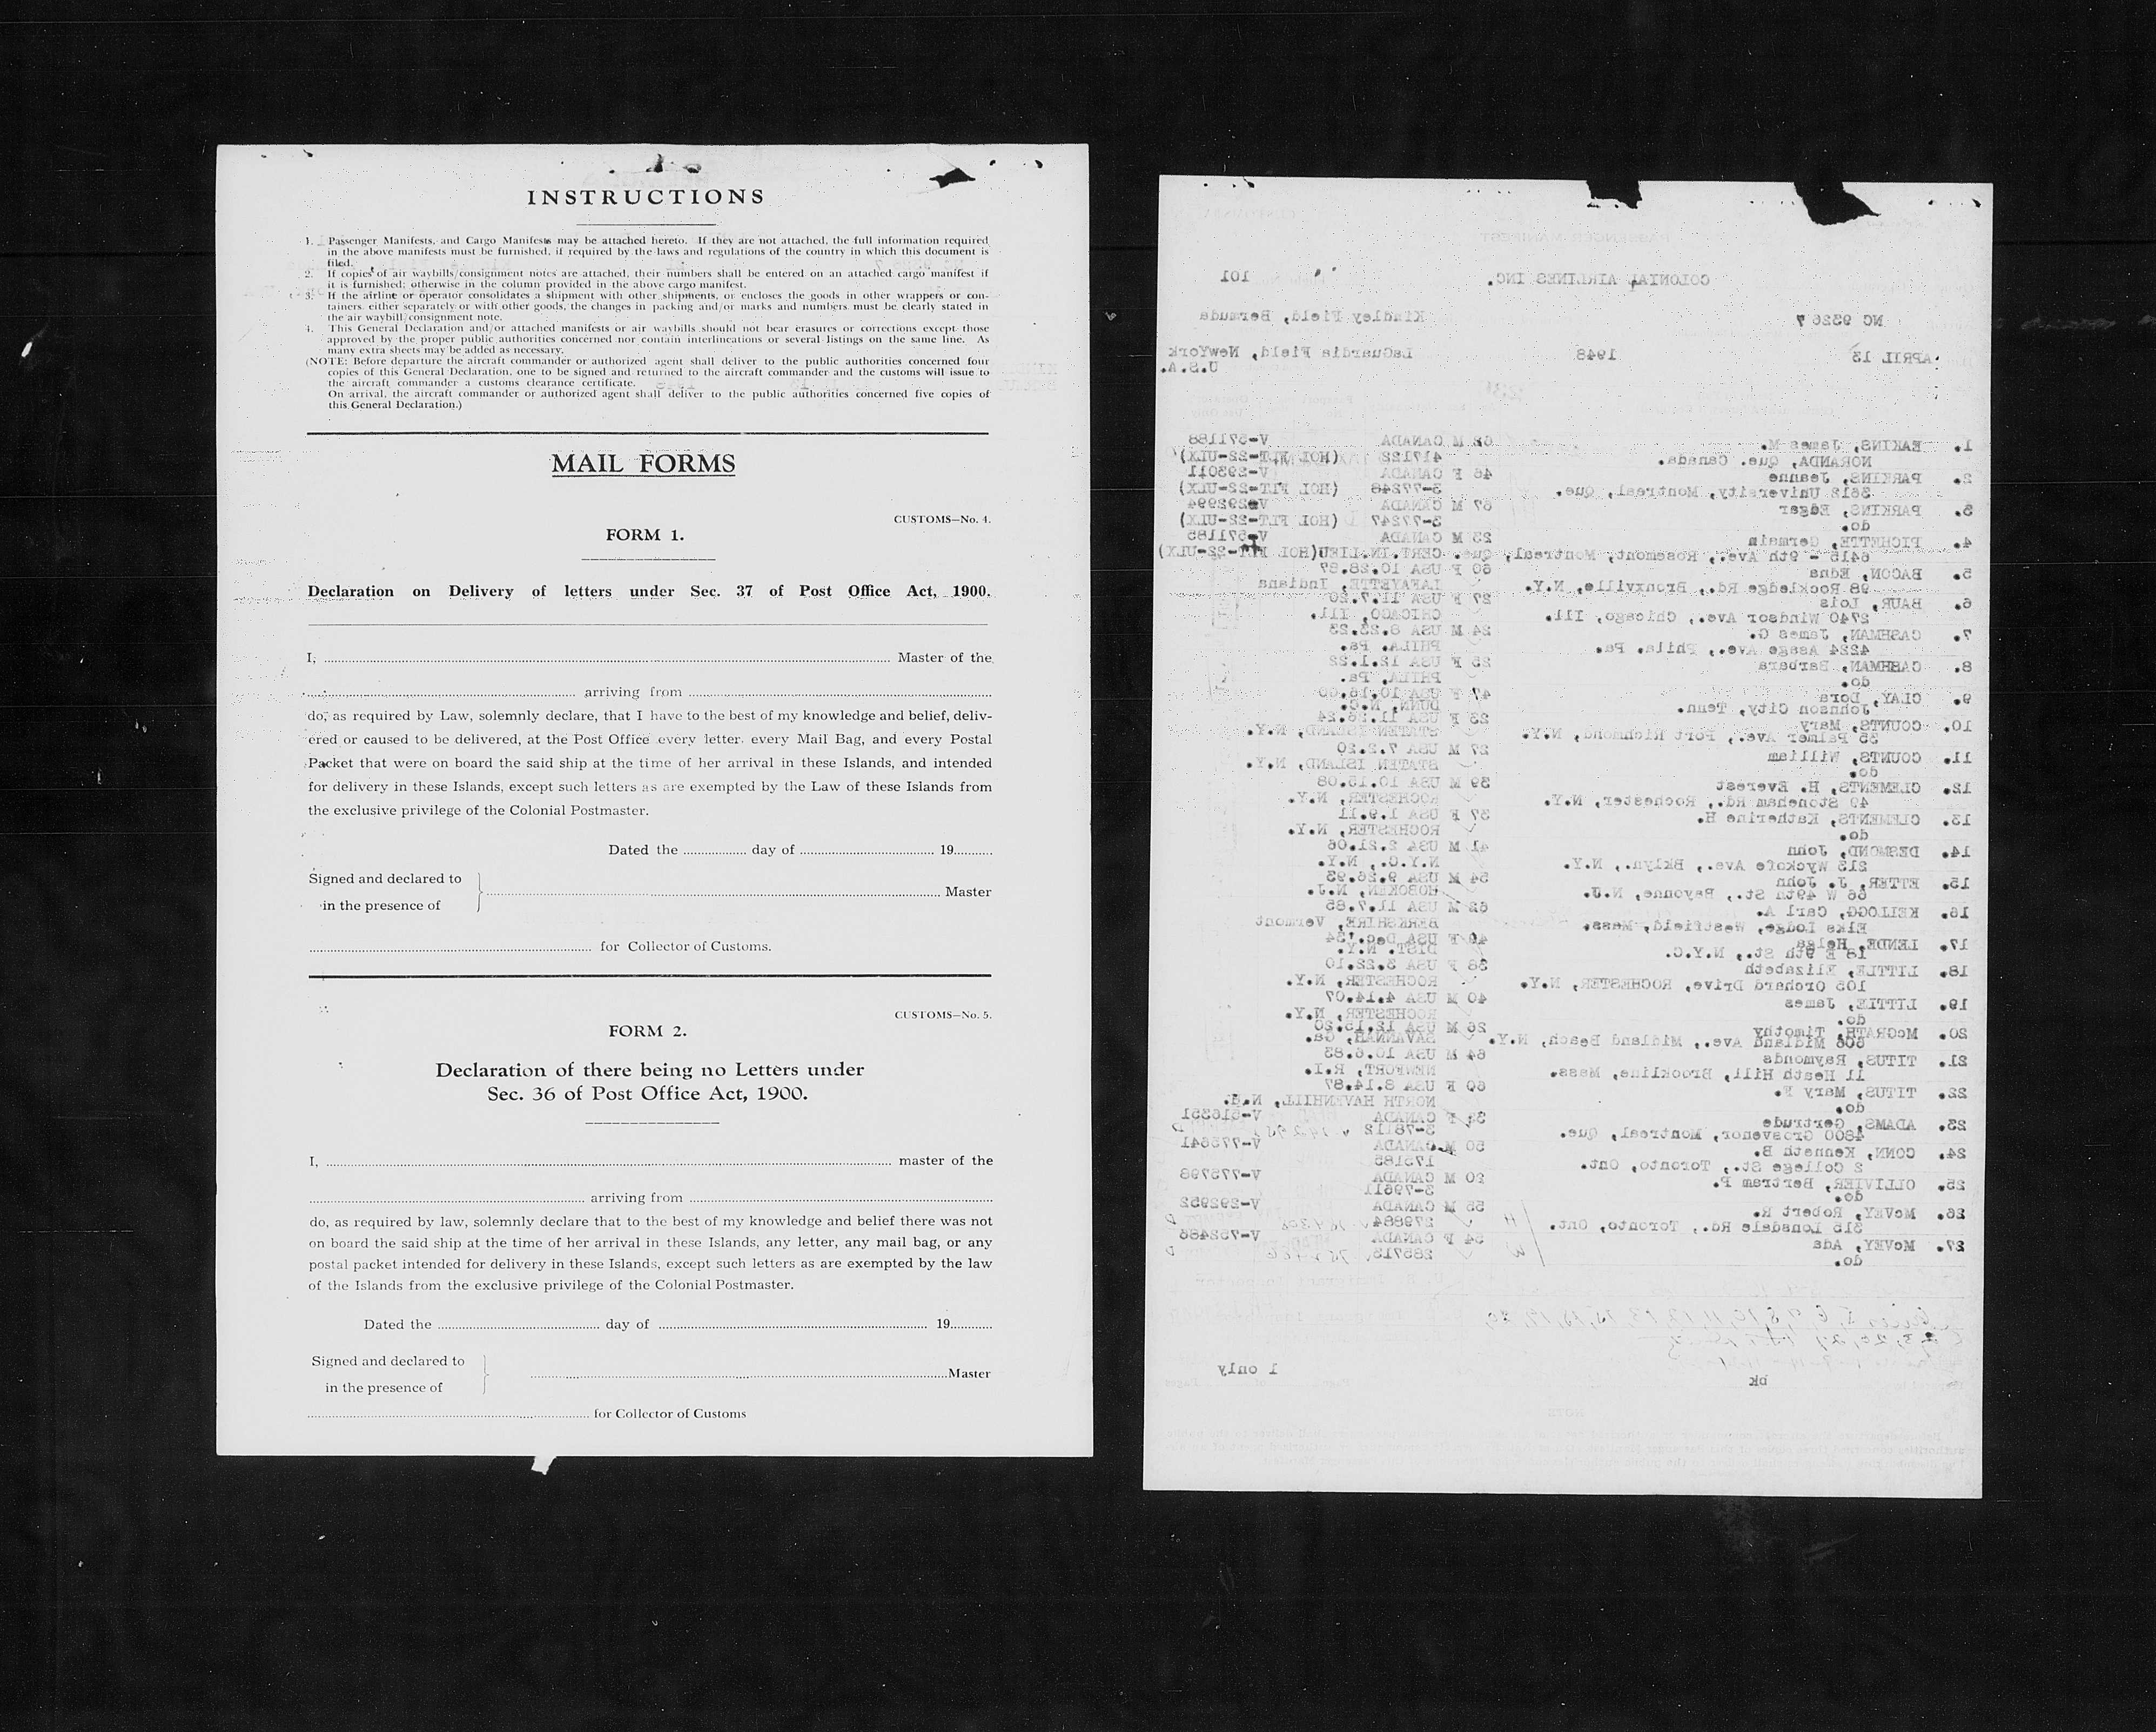 INSTRUCTIONS
1. Passenger Manifests, and Cargo Manifests may be attached hereto. If they are not attached, the full information required
in the above manifests must be furnished, if required by the laws and regulations of the country in which this document is
filed.
2. If copies of air waybills/consignment notes are attached, their numbers shall be entered on an attached cargo manifest if
it is furnished; otherwise in the column provided in the above cargo manifest.
3. If the airline or operator consolidates a shipment with other shipments, or encloses the goods in other wrappers or con-
tainers either separately or with other goods, the changes in packing and/or marks and numbers must be clearly stated in
the air waybill/consignment note.
4. This General Declaration and/or attached manifests or air waybills should not bear erasures or corrections except those
approved by the proper public authorities concerned nor contain interlineations or several listings on the same line. As
many extra sheets may be added as necessary.
(NOTE: Before departure the aircraft commander or authorized agent shall deliver to the public authorities concerned four
copies of this General Declaration, one to be signed and returned to the aircraft commander and the customs will issue to
the aircraft commander a customs clearance certificate.
On arrival, the aircraft commander or authorized agent shall deliver to the public authorities concerned five copies of
this General Declaration.)
MAIL FORMS
CUSTOMS—No. 4.
FORM 1.
Declaration on Delivery of letters under Sec. 37 of Post Office Act, 1900.
I, Master of the
arriving from
do, as required by Law, solemnly declare, that I have to the best of my knowledge and belief, deliv-
ered or caused to be delivered, at the Post Office every letter. every Mail Bag, and every Postal
Packet that were on board the said ship at the time of her arrival in these Islands, and intended
for delivery in these Islands, except such letters as are exempted by the Law of these Islands from
the exclusive privilege of the Colonial Postmaster.
Dated the day of 19
Signed and declared to
Master
in the presence of
for Collector of Customs.
CUSTOMS—No. 5.
FORM 2.
Declaration of there being no Letters under
Sec. 36 of Post Office Act, 1900.
I, master of the
arriving from
do, as required by law, solemnly declare that to the best of my knowledge and belief there was not
on board the said ship at the time of her arrival in these Islands, any letter, any mail bag, or any
postal packet intended for delivery in these Islands, except such letters as are exempted by the law
of the Islands from the exclusive privilege of the Colonial Postmaster.
Dated the day of 19
Signed and declared to
Master
in the presence of
for Collector of Customs
COLONIAL AIRLINES INC. 101
NC 93267 Kindley Field, Bermuda
APRIL 13 1948 LaGuardia Field, NewYork
U.S.A.
1. EAKINS, James M. M CANADA V-571188
NORANDA, Que. Canada. 417122 (HOI FLT-22-ULX)
2. PARKINS, Jeanne 46 F CANADA V-293011
3612 University, Montreal, Que. 3-77248 (HOI FLT-22-ULX)
3. PARKINS, Edgar 67 M CANADA V-292994
do. 3-77247 (HOI FLT-22-ULX)
4. PICHETTE, Germain 23 M CANADA V-571185
6415 - 9th Ave., Rosemont, Montreal, Que. CERT.IN.LIEU(HOI FLT-22-ULX)
5. BACON, Edna 60 F USA 10.28.87
98 Rockledge Rd., Bronxville, N.Y. LAFAYETTE, Indiana
6. BAUR, Lois 27 F USA 11.7.20
2740 Windsor Ave., Chicago, Ill. CHICAGO, Ill.
7. CASHMAN, James G. 24 M USA 8.23.23
4224 Ave., Phila. Pa. PHILA. Pa.
8. CASHMAN, Barbara 25 F USA 12.1.22
do. PHILA, Pa.
9. CLAY, Dora 47 F USA
Johnson City, Tenn. DUNN, N.C.
10. COUNTS, Mary 23 F USA 11.26.24
35 Palmer Ave., Port Richmond, N.Y. STATEN ISLAND, N.Y.
11. COUNTS, William 27 M USA 7.2.20
do. STATEN ISLAND, N.Y.
12. CLEMENTS, H. Everest 39 M USA 10.15.08
49 Stoneham Rd., Rochester, N.Y. ROCHESTER, N.Y.
13. CLEMENTS, Katherine H. 37 F USA 1.9.11
do. ROCHESTER, N.Y.
14. DESMOND, John 41 M USA 2.21.06
213 Wyckofe Ave., Bklyn., N.Y. N.Y.C., N.Y.
15. ETTER, J. John 54 M USA 9.26.93
66 W 49th St., Bayonne, N.J. HOBOKEN, N.J.
16. KELLOGG, Carl A. 62 M USA 11.7.85
Elks Lodge, Westfield, Mass. BERKSHIRE, Vermont
17. LENDE, Helga F USA Dec.'34
18 E 9th St., N.Y.C. DIST. N.Y.
18. LITTLE, Elizabeth 38 F USA 3.22.10
105 Orchard Drive, ROCHESTER, N.Y. ROCHESTER, N.Y.
19. LITTLE, James 40 M USA 4.14.07
do. ROCHESTER, N.Y.
20. McGRATH, Timothy 26 M USA 12.15.20
606 Midland Ave., Midland Beach, N.Y. SAVANNAH, Ga.
21. TITUS, Raymonds 64 M USA 10.6.83
11 Heath Hill, Brookline, Mass. NEWPORT, R.I.
22. TITUS, Mary F. 60 F USA 8.14.87
do. NORTH HAVENHILL, N.H.
23. ADAMS, Gertrude F CANADA V-516351
4800 Grosvenor, Montreal, Que. 3-78112
24. CONN, Kenneth B. 50 M CANADA V-773641
2 College St., Toronto, Ont. 175185
25. OLLIVIER, Bertram P. 20 M CANADA V-775798
do. 3-79611
26. McVEY, Robert R. 55 M CANADA V-292952
315 Lonsdale Rd., Toronto, Ont. 279884
27. McVEY, Ada 54 F CANADA V-752486
do. 285713
1 only
bk